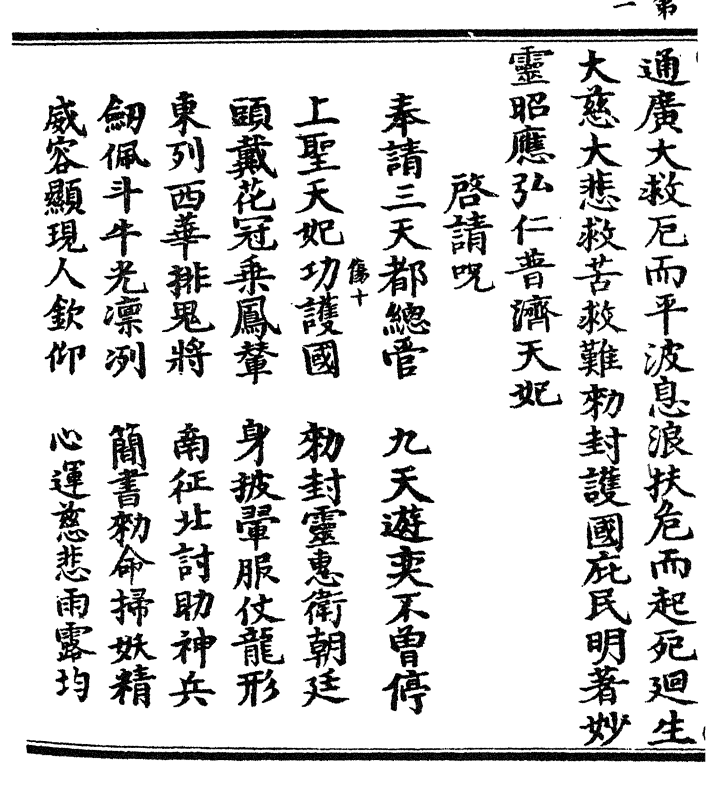 第一
通廣大救厄而平波息浪扶危而起死廻生
大慈大悲救苦救難勑封護國庇民明著妙
靈昭應弘仁普濟天妃
啓請呪
奉請三天都總管 九天遊奕不曾停
傷十
上聖天妃功護國 勑封靈惠衛朝廷
頭戴花冠乗鳳輦 身披翬服仗龍形
東列西華排鬼將 南征北討助神兵
劒佩斗牛光凛冽 簡書勑命掃妖精
威容顯現人欽仰 心運慈悲雨露均